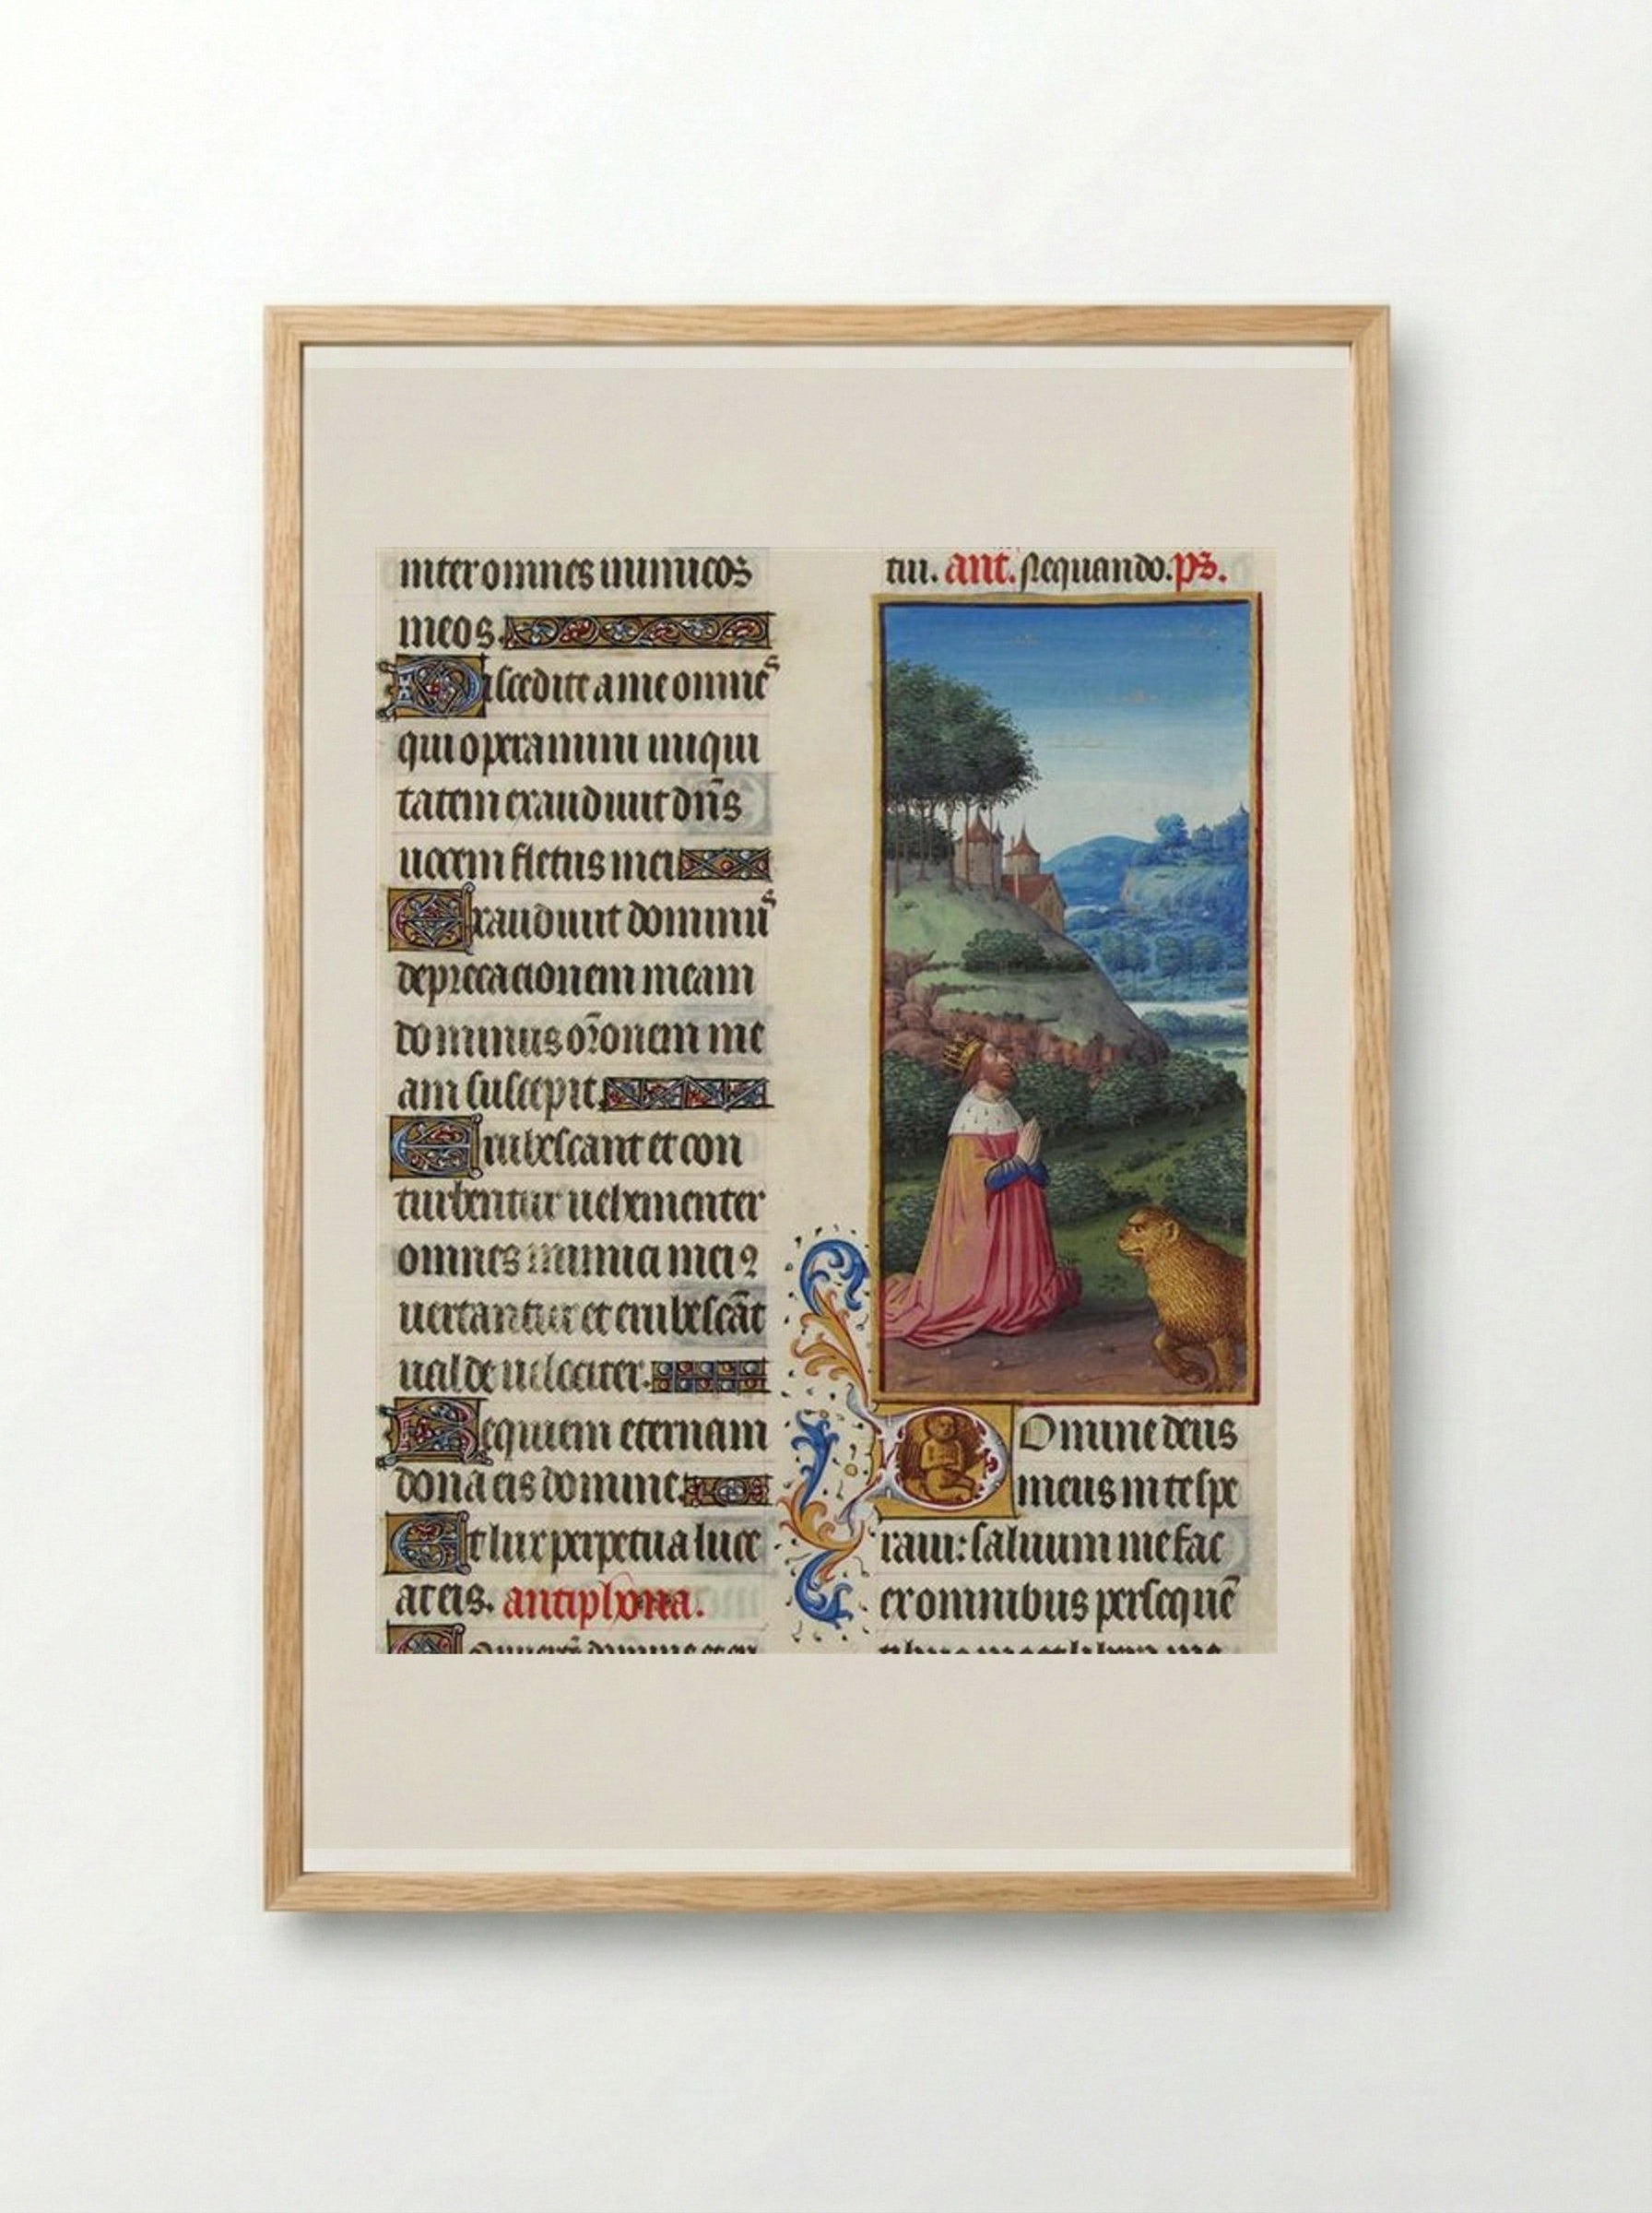 inter omnes inimicos
meos.
Discedite a me omnes
qui operamini iniqui
tatem exaudivit dn̄s
uocem fletus mei
Exaudiuit dominus
deprecacionem meam
dominus or̄onem me
am suscepit.
Erubescant et con
turbentur uehementer
omnes inimici mei ꝯ
uertantur et erubescāt
ualde uelociter.
Requiem eternam
dona eis domine.
Et lux perpetua luce
at eis. antiphona.
tui. ant. Nequando. ps.
Domine deus
meus in te spe
raui: saluum me fac
ex omnibus persequē